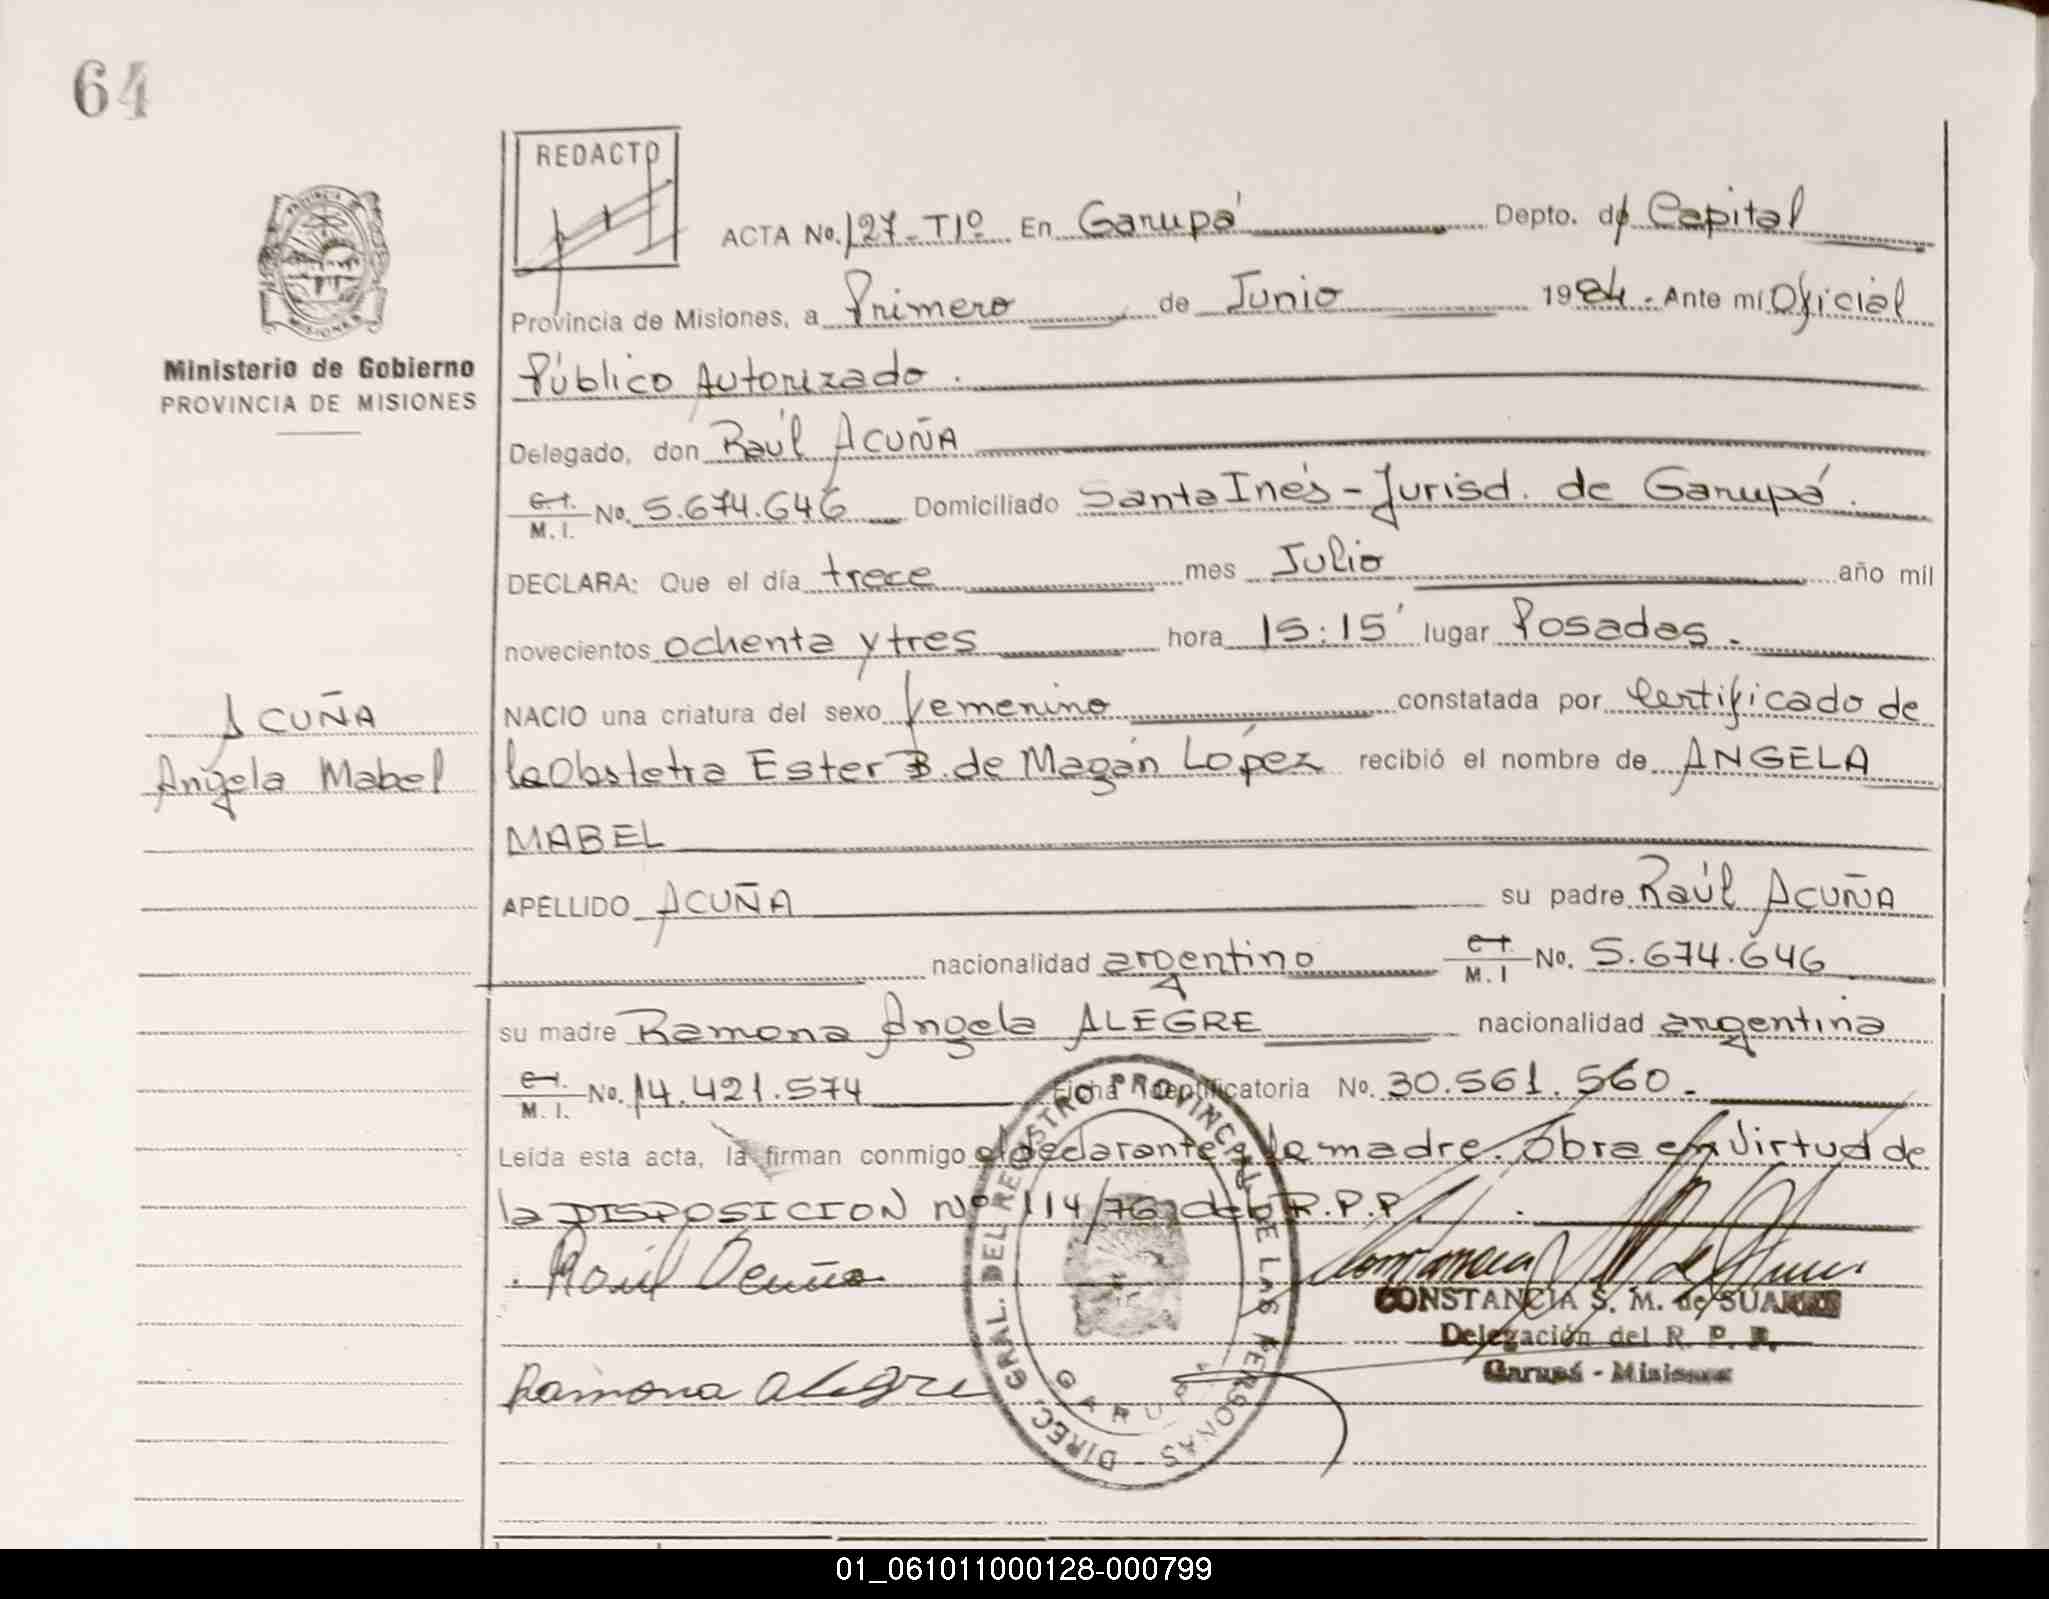 64
REDACTO
ACTA No. 127-T1º En Garupá Depto. de Capital
Provincia de Misiones, a Primero de Junio 1984. Ante mí Oficial
Público Autorizado.
Ministerio de Gobierno
PROVINCIA DE MISIONES
Delegado, don Raúl ACUÑA
C.I. M. I. No. 5.674.646 Domiciliado Santa Inés - Jurisd. de Garupá.
DECLARA: Que el día trece mes Julio año mil
novecientos ochenta y tres hora 15:15' lugar Posadas.
ACUÑA
Angela Mabel
NACIO una criatura del sexo femenino constatada por Certificado de
la Obstetra Ester B. de Magán López recibió el nombre de ANGELA
MABEL
APELLIDO ACUÑA su padre Raúl ACUÑA
nacionalidad argentino C.I. M. I No. 5.674.646
su madre Ramona Angela ALEGRE nacionalidad argentina
C.I. M. I. No. 14.421.574 Ficha Identificatoria No. 30.561.560.-
Leída esta acta, la firman conmigo el declarante y la madre. Obra en Virtud de
la DISPOSICION Nº 114/76 del R.P.P.
Raúl Acuña
CONSTANCIA S. M. de SUAREZ
Delegación del R. P. P.
Garupá - Misiones
Ramona Alegre
DIREC. GRAL. DEL REGISTRO PROVINCIAL DE LAS PERSONAS
GARUPÁ
01_061011000128-000799